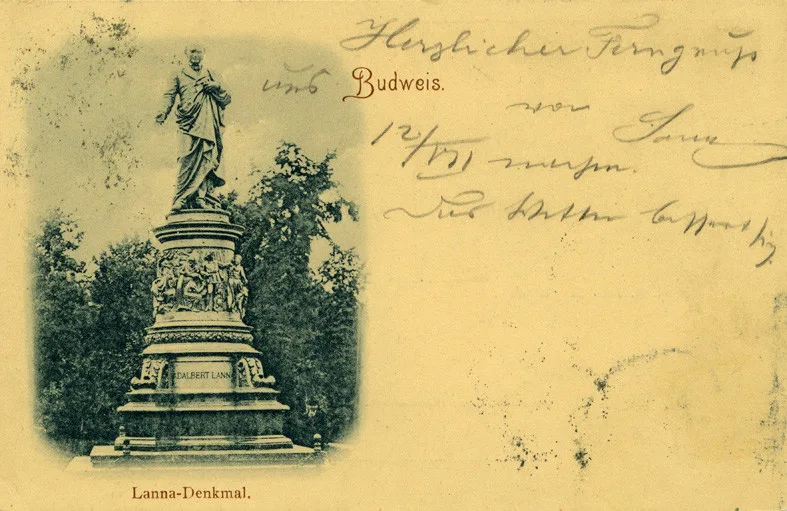 Herzlicher Ferngruß
aus Budweis.
von
12/VII
Das Wetter bessert sich
ADALBERT LANNA
Lanna-Denkmal.